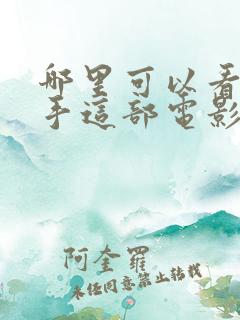 哪里可以看
手這部電影
阿奎羅
未经同意禁止转载